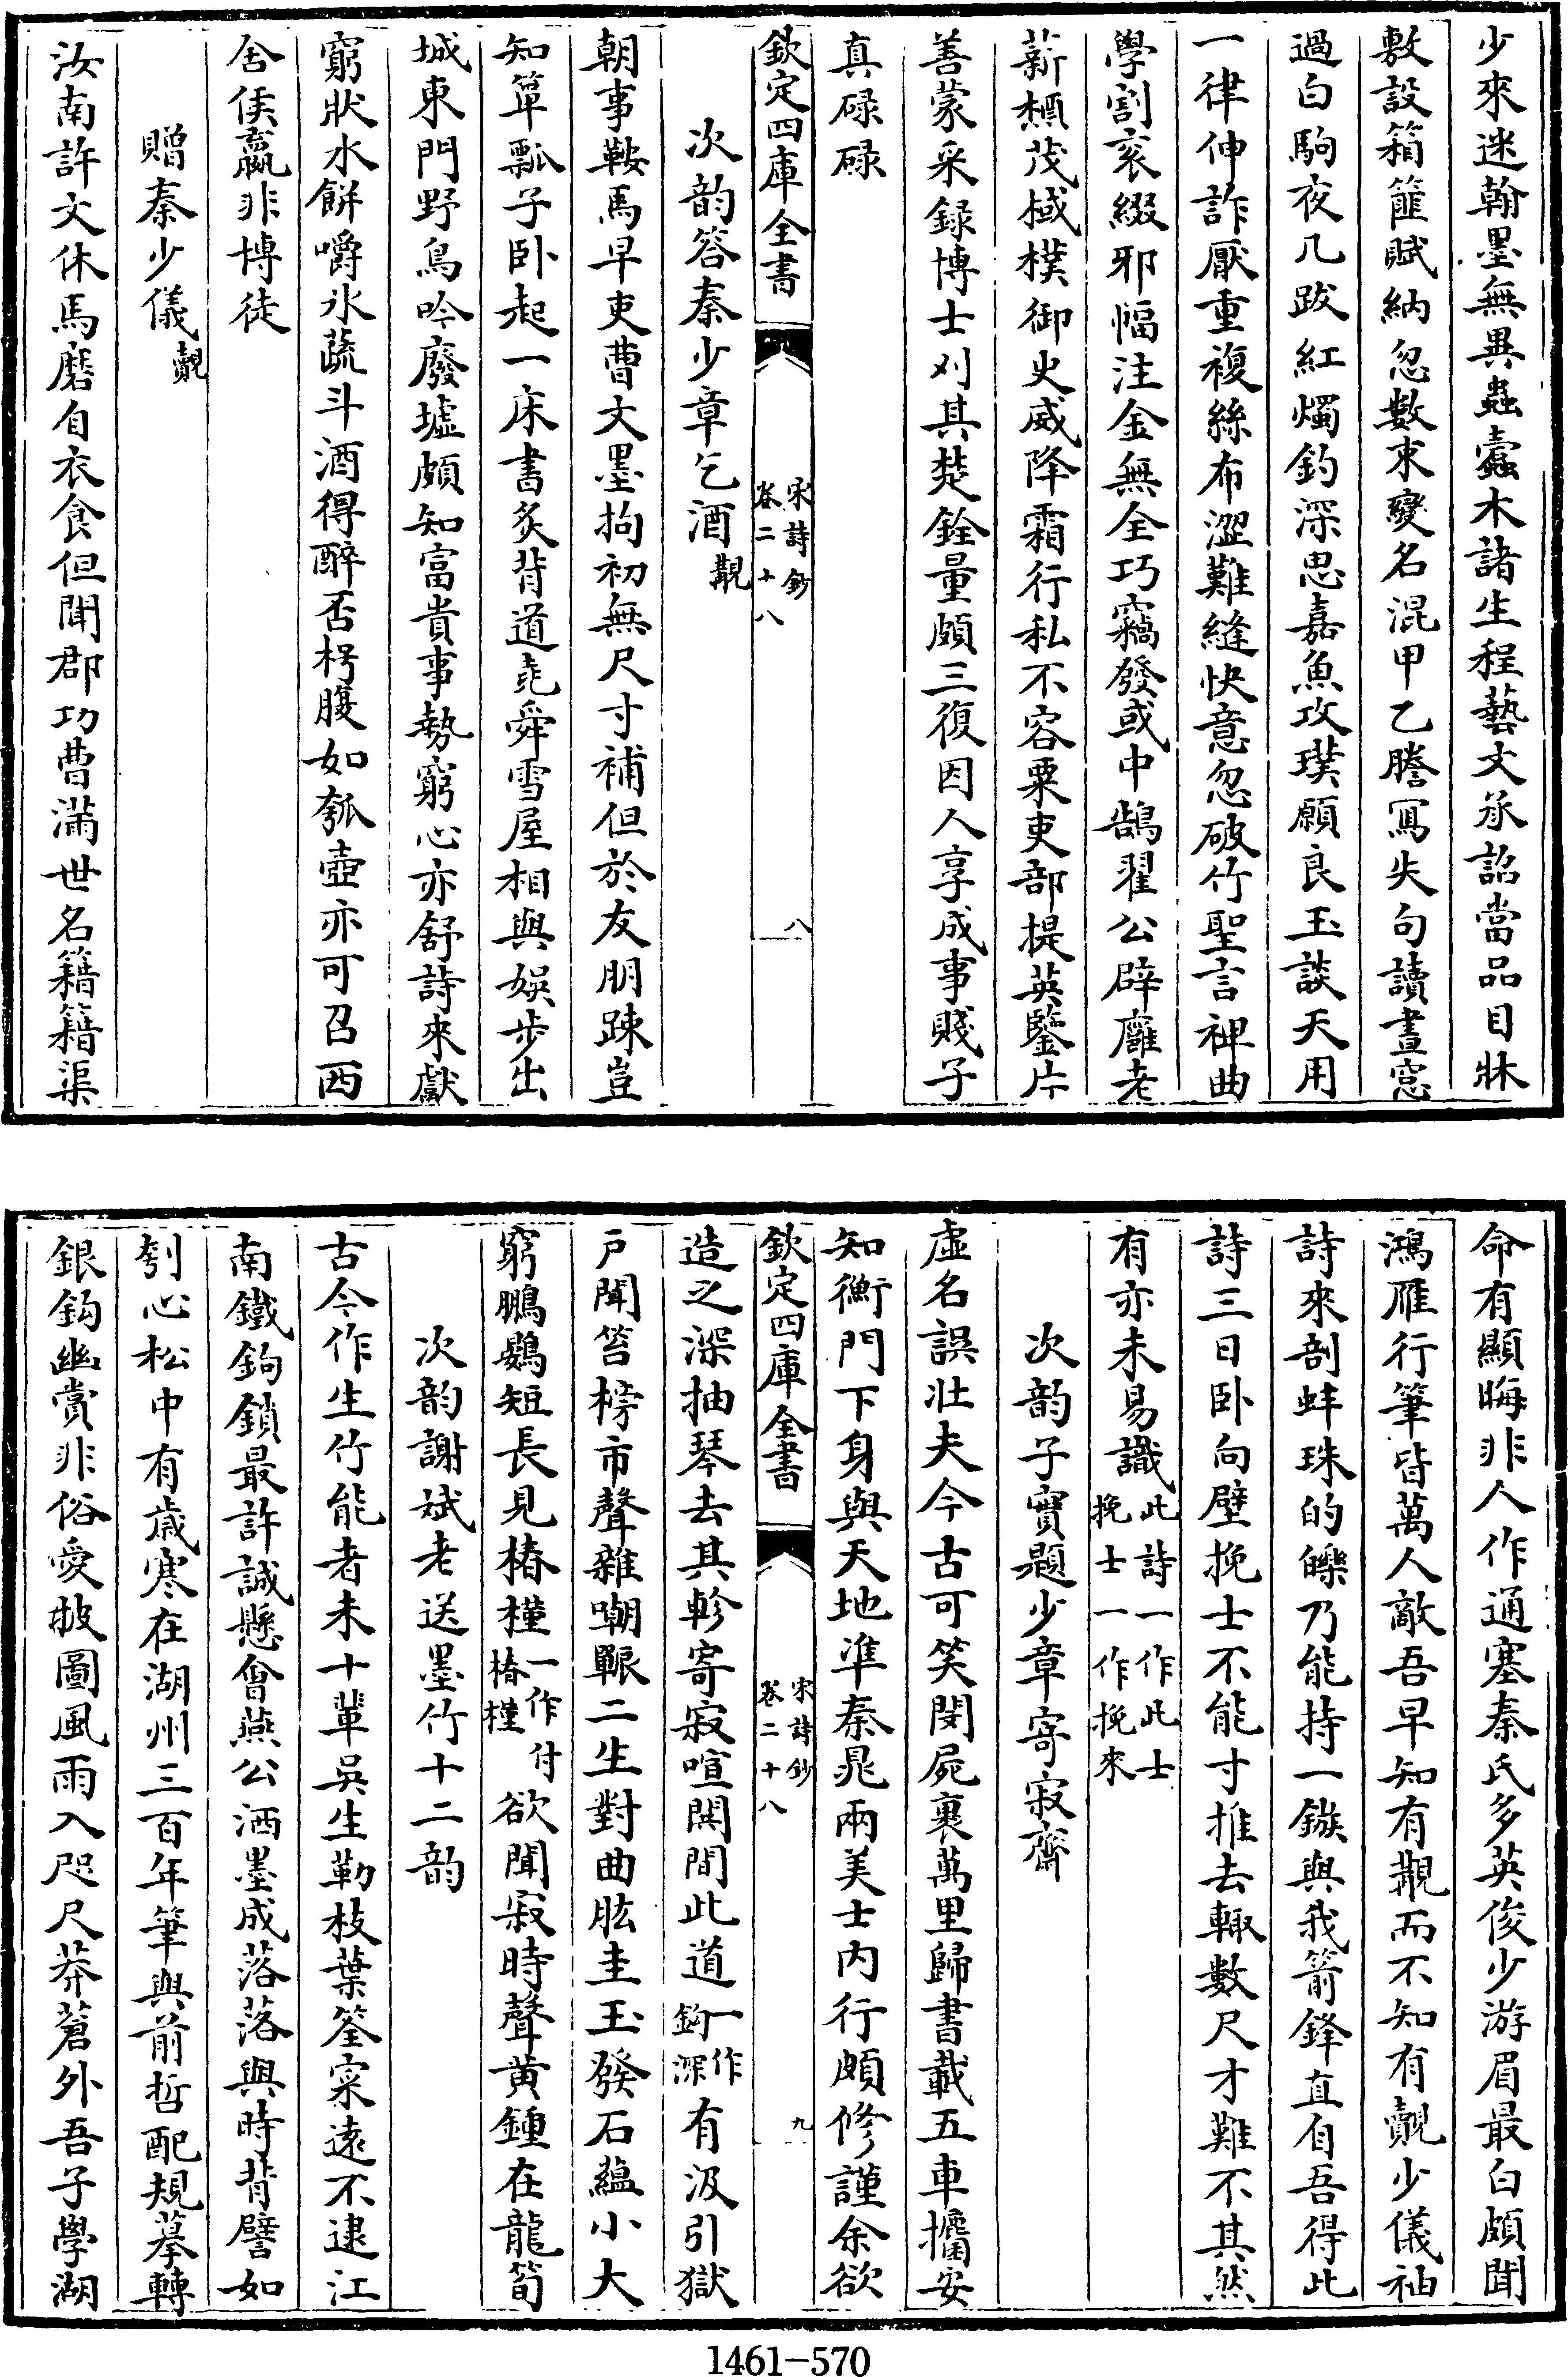 少來迷翰墨無異蟲蠹木諸生程藝文承詔當品目牀
敷設箱篚賦納忽數束變名混甲乙謄冩失句讀晝窓
過白駒夜几跋紅燭釣深思嘉魚攻璞願良玉談天用
一律伸詐厭重複絲布澀難縫快意忽破竹聖言裨曲
學割衮綴邪幅注金無全巧竊發或中鵠翟公辟廱老
薪槱茂棫樸御史威降霜行私不容粟吏部提英鑒片
善蒙采録博士刈其楚銓量頗三復因人享成事賤子
真碌碌
欽定四庫全書
宋詩鈔
卷二十八
八
次韵答秦少章乞酒覯
朝事鞍馬早吏曹文墨拘初無尺寸補但於友朋踈豈
知簞瓢子卧起一床書炙背道堯舜雪屋相與娱步出
城東門野鳥吟廢墟頗知富貴事勢窮心亦舒詩來獻
窮狀水餅嚼氷蔬斗酒得醉否枵腹如瓠壺亦可召西
舍侯嬴非博徒
贈秦少儀覿
汝南許文休馬磨自衣食但聞郡功曹滿世名籍籍渠
命有顯晦非人作通塞秦氏多英俊少游眉最白頗聞
鴻雁行筆皆萬人敵吾早知有覯而不知有覿少儀袖
詩來剖蚌珠的皪乃能持一鏃與我箭鋒直自吾得此
詩三日卧向壁挽士不能寸推去輙數尺才難不其然
有亦未易識此詩一作此士
挽士一作挽來
次韵子實題少章寄寂齋
虚名誤壯夫今古可笑閔屍裹萬里歸書載五車攟安
知衡門下身與天地準秦晁兩美士内行頗修謹余欲
欽定四庫全書
宋詩鈔
卷二十八
九
造之深抽琴去其軫寄寂喧闃間此道一作
鈎深有汲引獄
户聞笞榜市聲雜嘲辴二生對曲肱圭玉發石藴小大
窮鵬鷃短長見椿槿一作付
椿槿欲聞寂時聲黄鍾在龍筍
次韵謝斌老送墨竹十二韵
古今作生竹能者未十輩吳生勒枝葉筌寀遠不逮江
南鐵鉤鎖最許誠懸會燕公洒墨成落落與時背譬如
刳心松中有歲寒在湖州三百年筆與前哲配規摹轉
銀鉤幽賞非俗愛披圖風雨入咫尺莽蒼外吾子學湖
1461-570